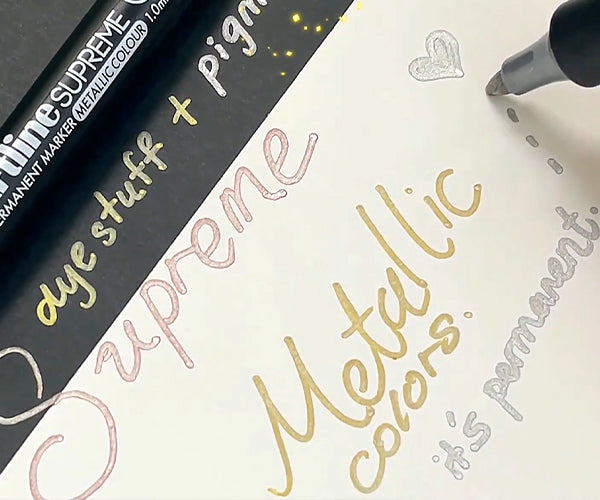 SUPREME
PERMANENT MARKER METALLIC COLOUR 1.0m
dye stuff +
Supreme
Metallic
colors.
it's permanent.